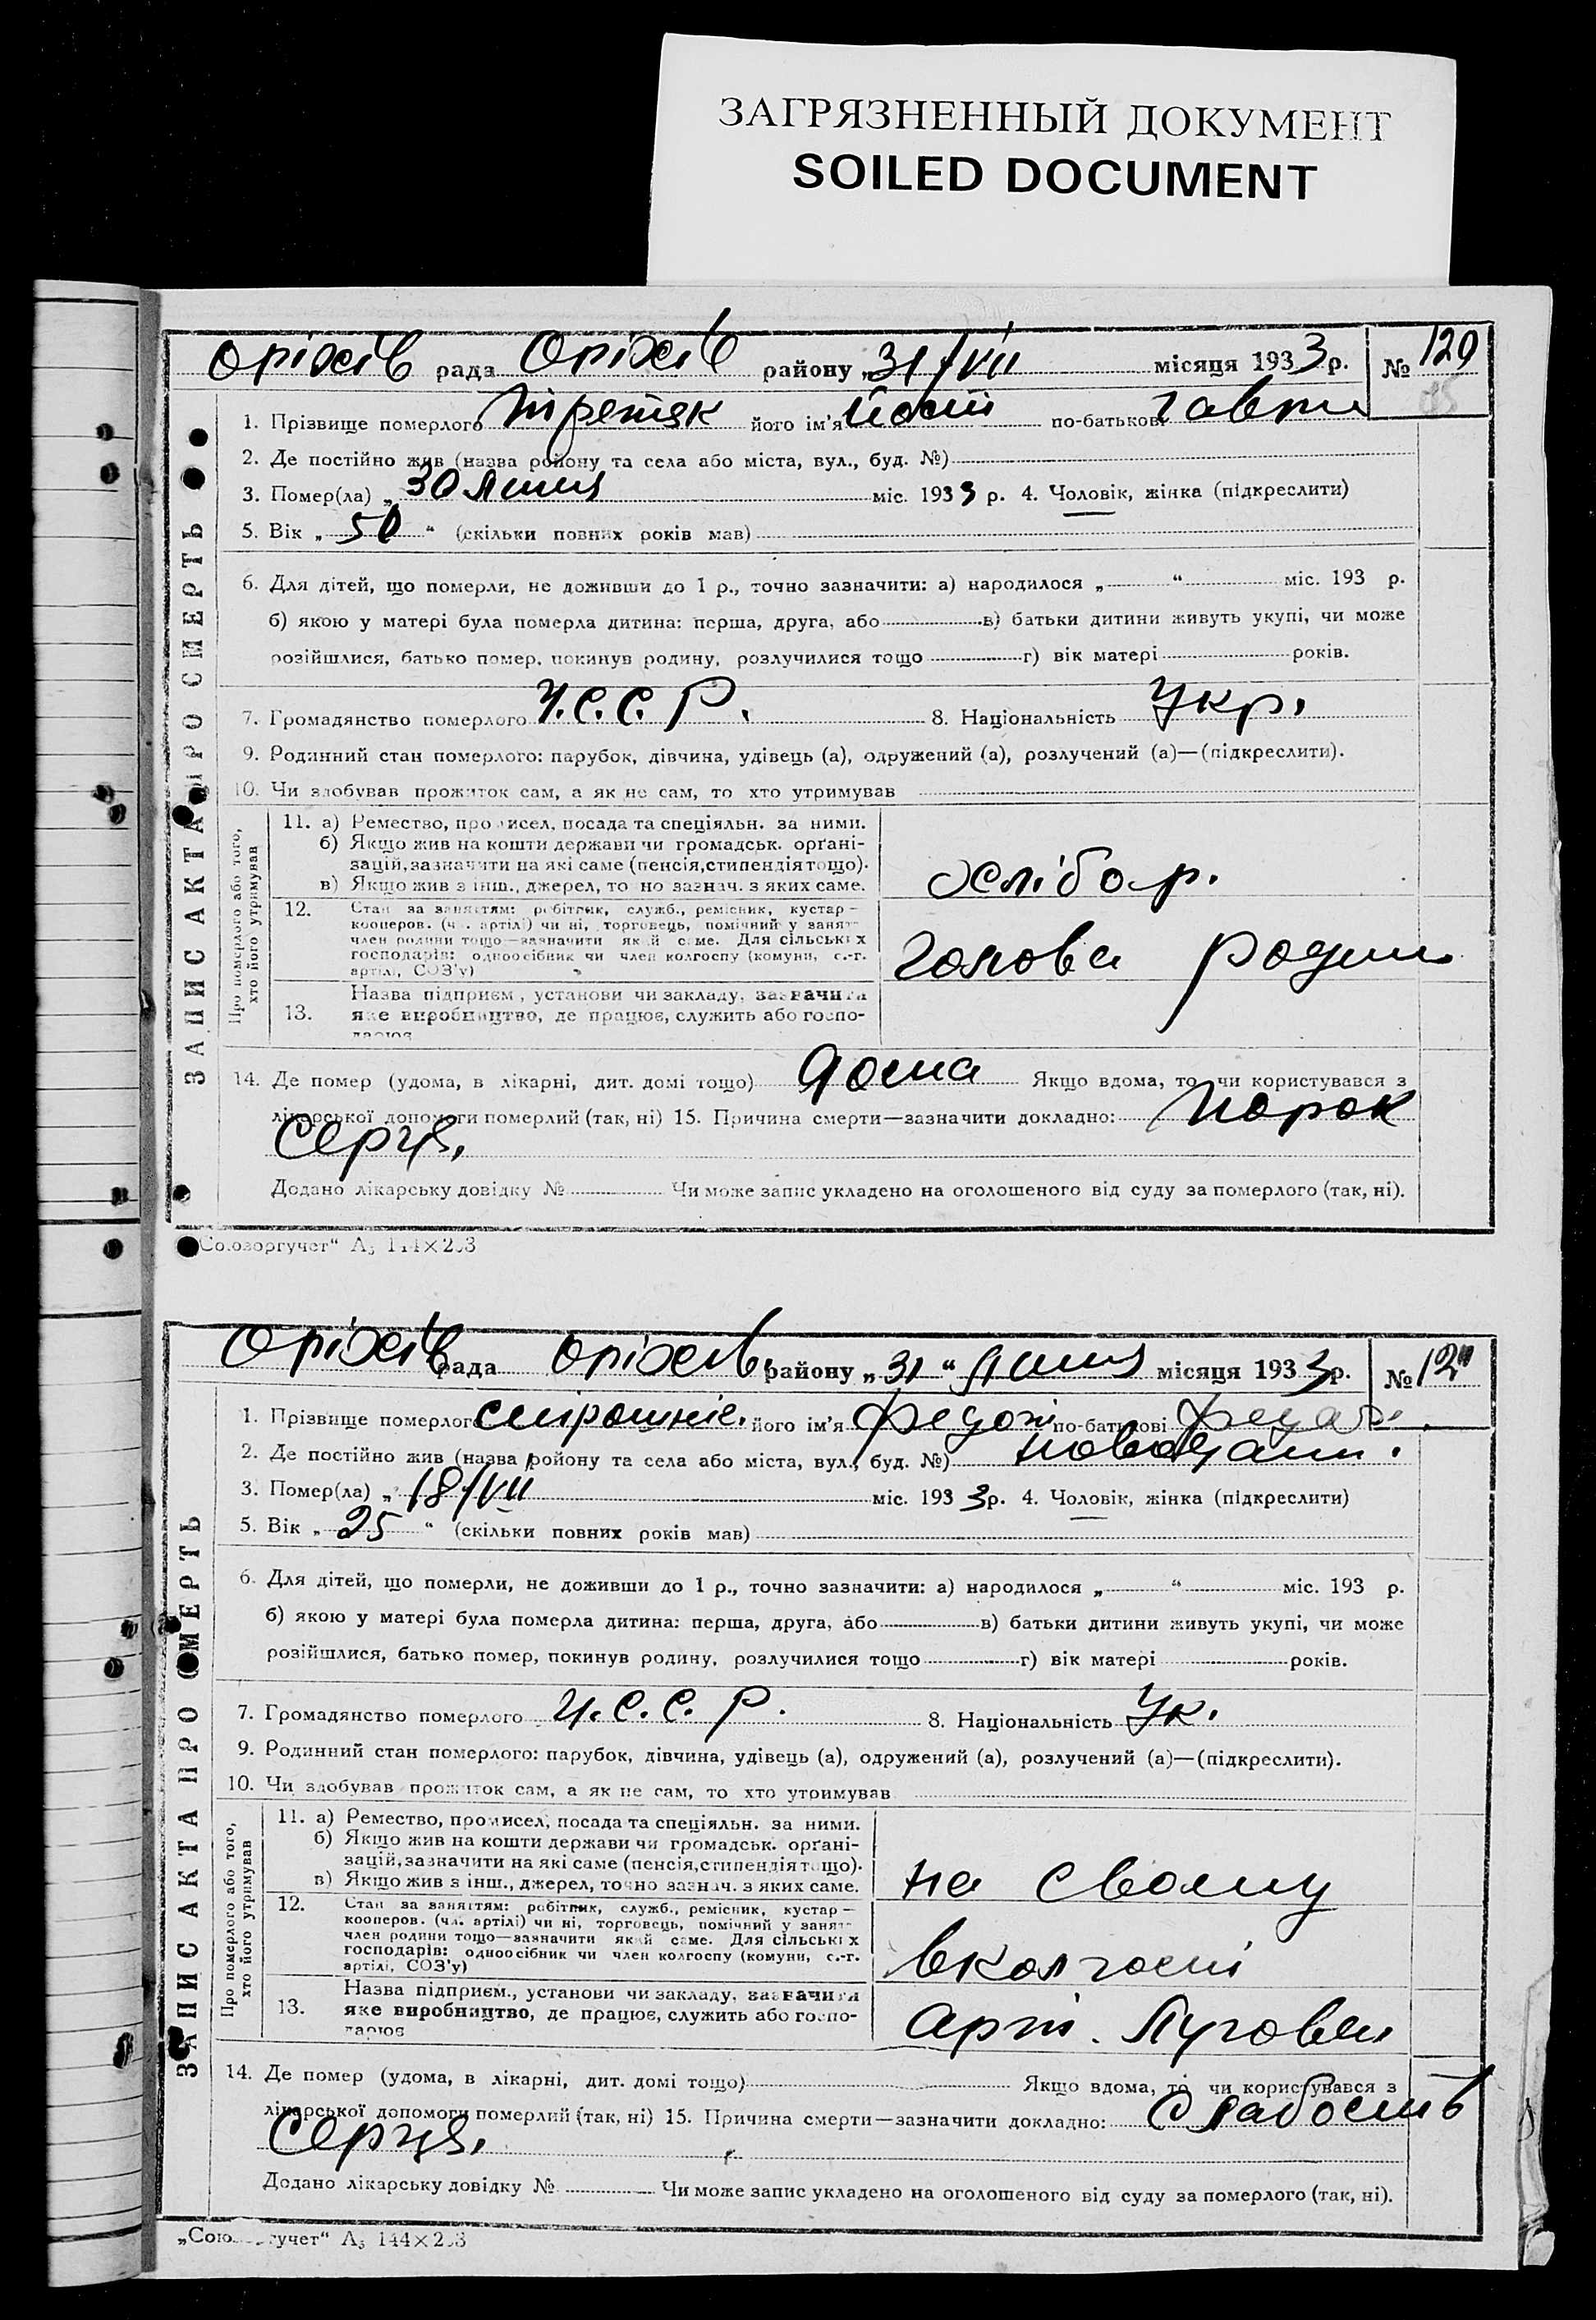 ЗАГРЯЗНЕННЫЙ ДОКУМЕНТ
SOILED DOCUMENT
ЗАПИС АКТА ПРО СМЕРТЬ
Оріхів рада Оріхів району „31/VII місяця 1933 р. № 120
1. Прізвище померлого Третяк його ім'я по-батькові
2. Де постійно жив (назва району та села або міста, вул., буд. №)
3. Помер(ла) „30 Липня міс. 1933 р. 4. Чоловік, жінка (підкреслити)
5. Вік „50“ (скільки повних років мав)
6. Для дітей, що померли, не доживши до 1 р., точно зазначити: а) народилося „ “ міс. 193 р.
б) якою у матері була померла дитина: перша, друга, або в) батьки дитини живуть укупі, чи може
розійшлися, батько помер, покинув родину, розлучилися тощо г) вік матері років.
7. Громадянство померлого У.С.С.Р. 8. Національність Укр.
9. Родинний стан померлого: парубок, дівчина, удівець (а), одружений (а), розлучений (а)—(підкреслити).
10. Чи здобував прожиток сам, а як не сам, то хто утримував
Про померлого або того, хто його утримував
11. а) Ремество, промисел, посада та спеціяльн. за ними.
б) Якщо жив на кошти держави чи громадськ. орґані-
зацій, зазначити на які саме (пенсія, стипендія тощо).
в) Якщо жив з інш., джерел, точно зазнач. з яких саме.
хлібор.
12. Стан за заняттям: робітник, служб., ремісник, кустар—
кооперов. (чл. артілі) чи ні, торговець, помічний у занят-
член родини тощо—зазначити який саме. Для сільських
господарів: одноосібник чи член колгоспу (комуни, с.-г.
артілі, СОЗ'у)
голова родини
13. Назва підприєм., установи чи закладу, зазначити
яке виробництво, де працює, служить або госпо-
дарює
14. Де помер (удома, в лікарні, дит. домі тощо) дома Якщо вдома, то чи користувався з
лікарської допомоги померлий (так, ні) 15. Причина смерти—зазначити докладно: порок
серця.
Додано лікарську довідку № Чи може запис укладено на оголошеного від суду за померлого (так, ні).
„Союзоргучет“ А₅ 144×203
ЗАПИС АКТА ПРО СМЕРТЬ
Оріхів рада Оріхів. району „31“ Липня місяця 1933 р. №
1. Прізвище померлого його ім'я по-батькові
2. Де постійно жив (назва району та села або міста, вул., буд. №)
3. Помер(ла) „18/VII міс. 1933 р. 4. Чоловік, жінка (підкреслити)
5. Вік „25“ (скільки повних років мав)
6. Для дітей, що померли, не доживши до 1 р., точно зазначити: а) народилося „ “ міс. 193 р.
б) якою у матері була померла дитина: перша, друга, або в) батьки дитини живуть укупі, чи може
розійшлися, батько помер, покинув родину, розлучилися тощо г) вік матері років.
7. Громадянство померлого У.С.С.Р. 8. Національність Ук.
9. Родинний стан померлого: парубок, дівчина, удівець (а), одружений (а), розлучений (а)—(підкреслити).
10. Чи здобував прожиток сам, а як не сам, то хто утримував
Про померлого або того, хто його утримував
11. а) Ремество, промисел, посада та спеціяльн. за ними.
б) Якщо жив на кошти держави чи громадськ. орґані-
зацій, зазначити на які саме (пенсія, стипендія тощо).
в) Якщо жив з інш., джерел, точно зазнач. з яких саме.
на своєму
12. Стан за заняттям: робітник, служб., ремісник, кустар—
кооперов. (чл. артілі) чи ні, торговець, помічний у занят-
член родини тощо—зазначити який саме. Для сільських
господарів: одноосібник чи член колгоспу (комуни, с.-г.
артілі, СОЗ'у)
в колгоспі
13. Назва підприєм., установи чи закладу, зазначити
яке виробництво, де працює, служить або госпо-
дарює
арт.
14. Де помер (удома, в лікарні, дит. домі тощо) Якщо вдома, то чи користувався з
лікарської допомоги померлий (так, ні) 15. Причина смерти—зазначити докладно: слабость
серця.
Додано лікарську довідку № Чи може запис укладено на оголошеного від суду за померлого (так, ні).
„Союзоргучет“ А₅ 144×203